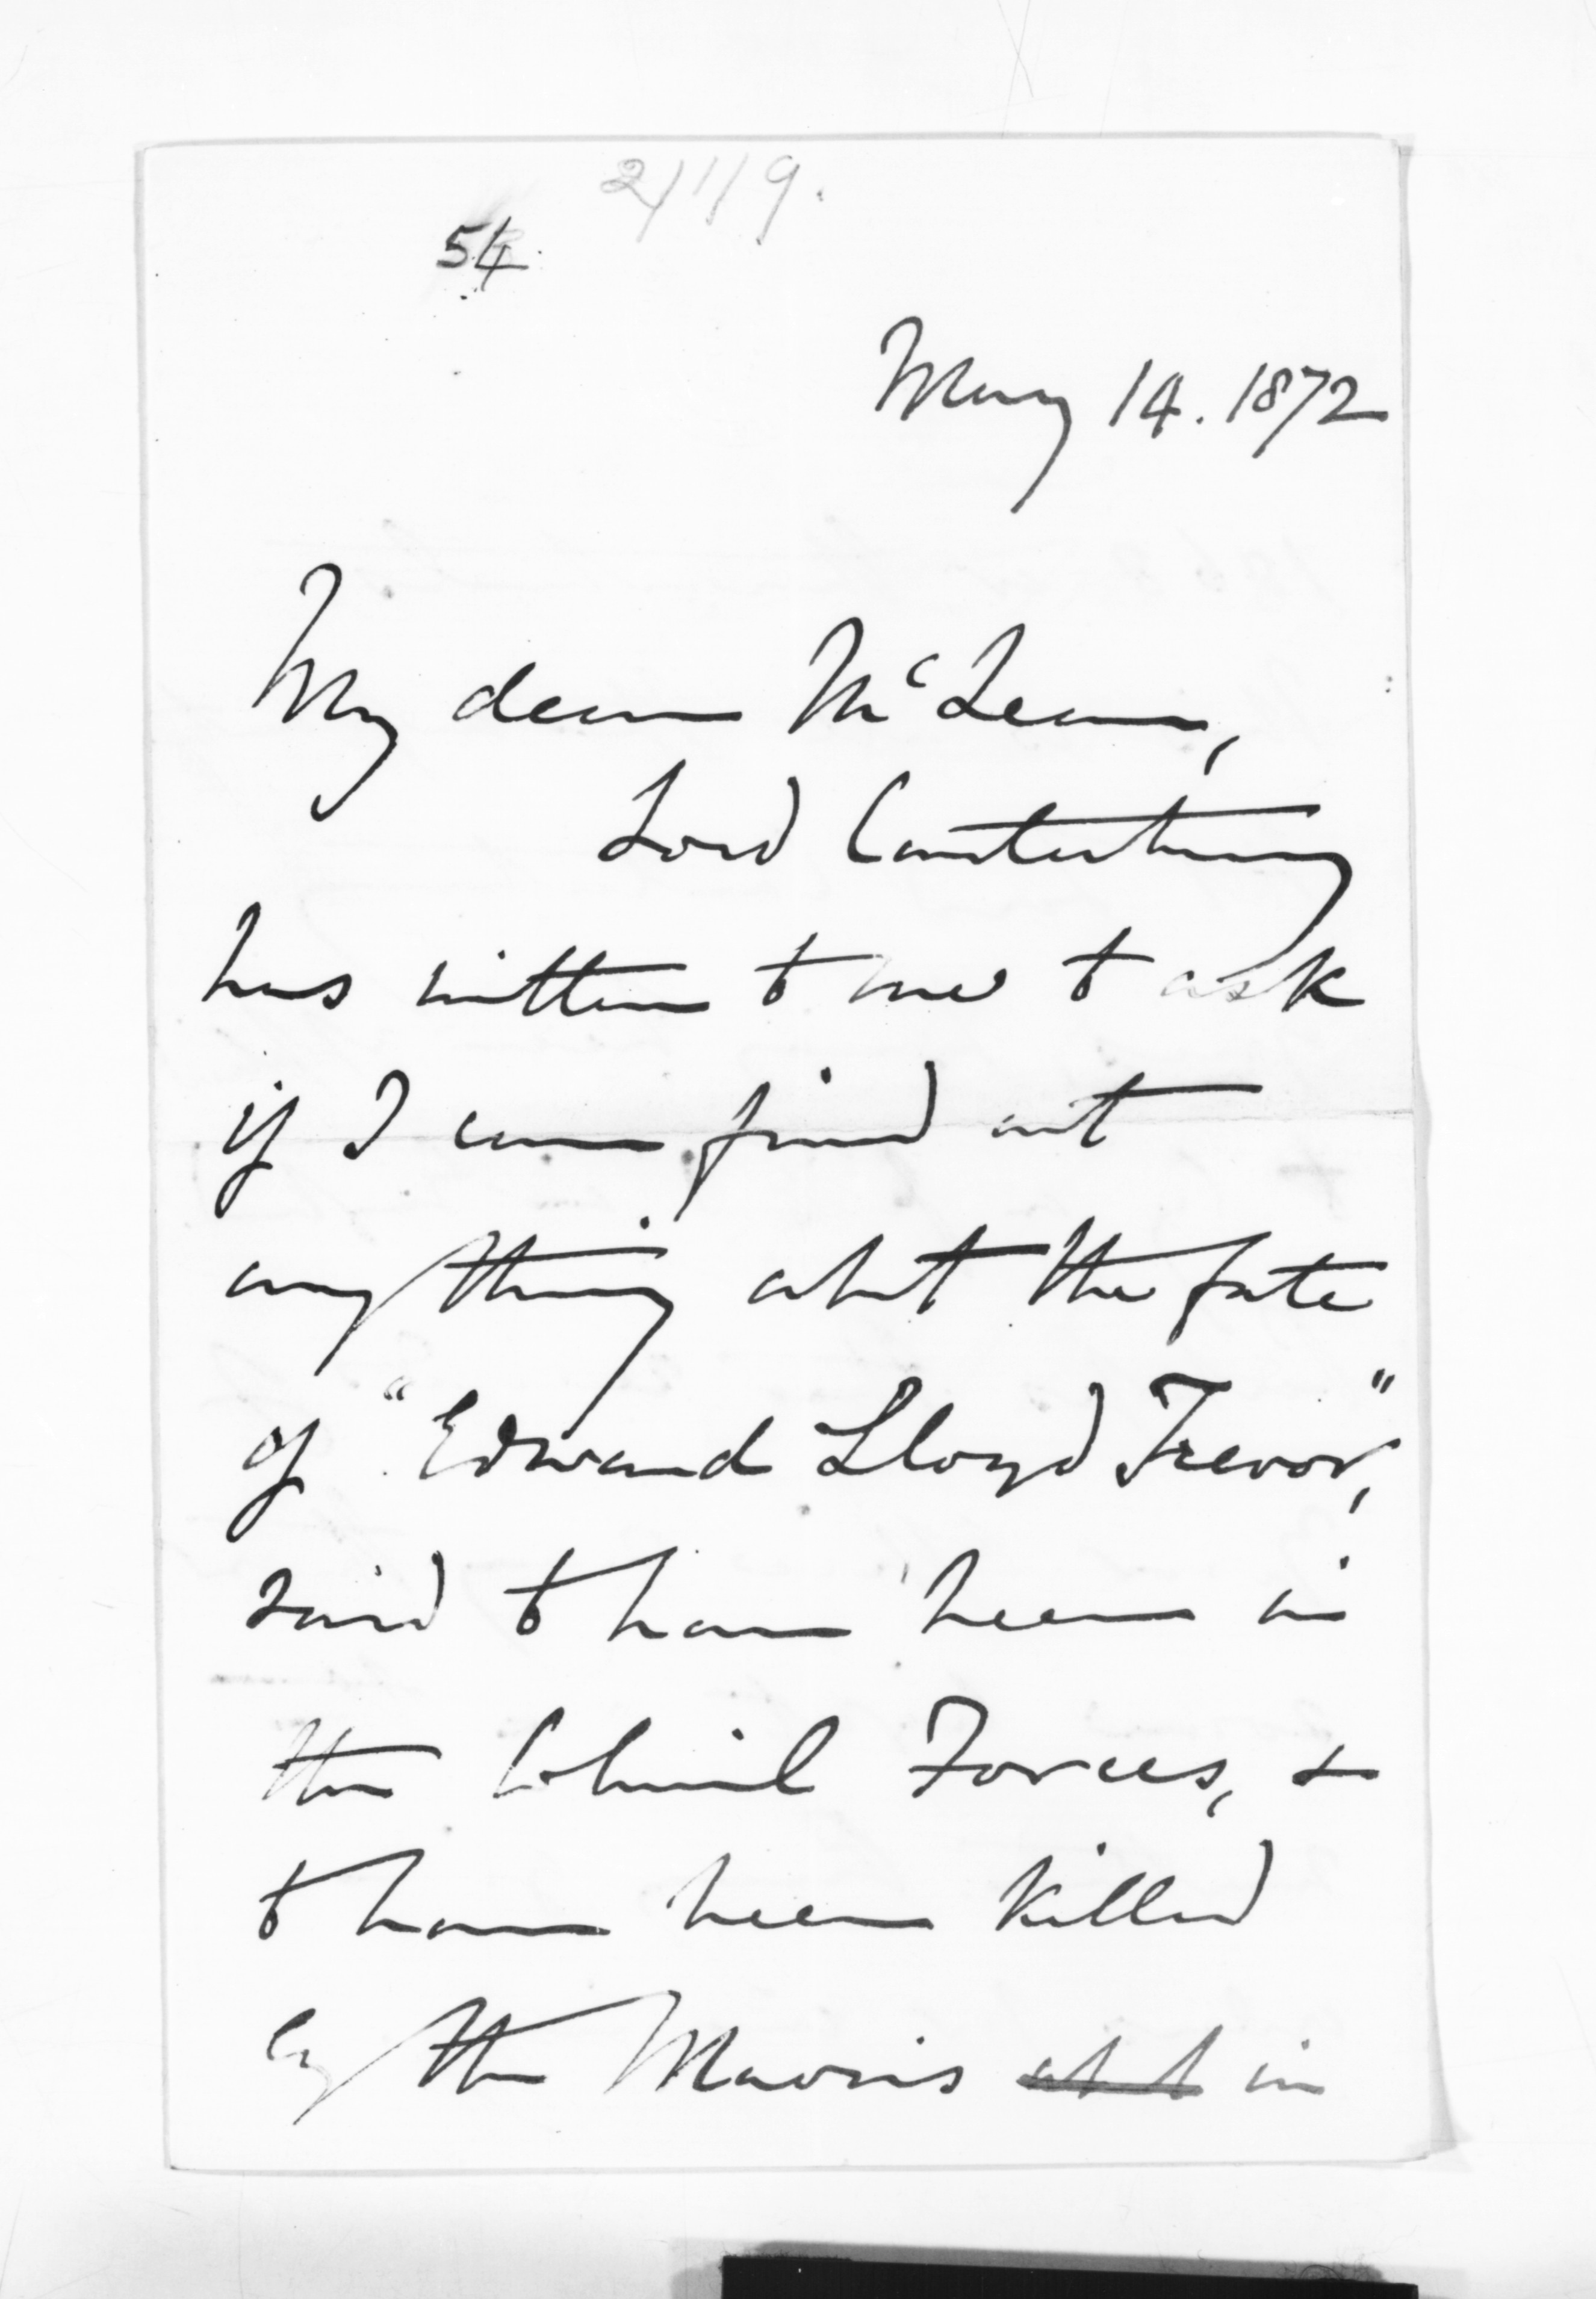 2/1/9.
54.
May 14. 1872
My dear McLean,
Lord Canterbury
has written to me to ask
if I can find out
anything about the fate
of "Edward Lloyd Trevor,"
said to have been in
the Colonial Forces, &
to have been killed
by the Maoris about in